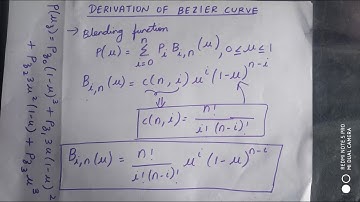 DERIVATION OF BEZIER CURVE
→ Blending function
P(μ) = Σ_{i=0}^{n} P_i B_{i,n}(μ), 0≤μ≤1
B_{i,n}(μ) = c(n,i) μ^i (1-μ)^{n-i}
c(n,i) = n! / i!(n-i)!
B_{i,n}(μ) = n! / i!(n-i)! μ^i (1-μ)^{n-i}
P(μ_3) = P_{30}(1-μ)^3 + P_{31} 3μ(1-μ)^2
+ P_{32} 3μ^2(1-μ) + P_{33} μ^3
REDMI NOTE 5 PRO
MI DUAL CAMERA